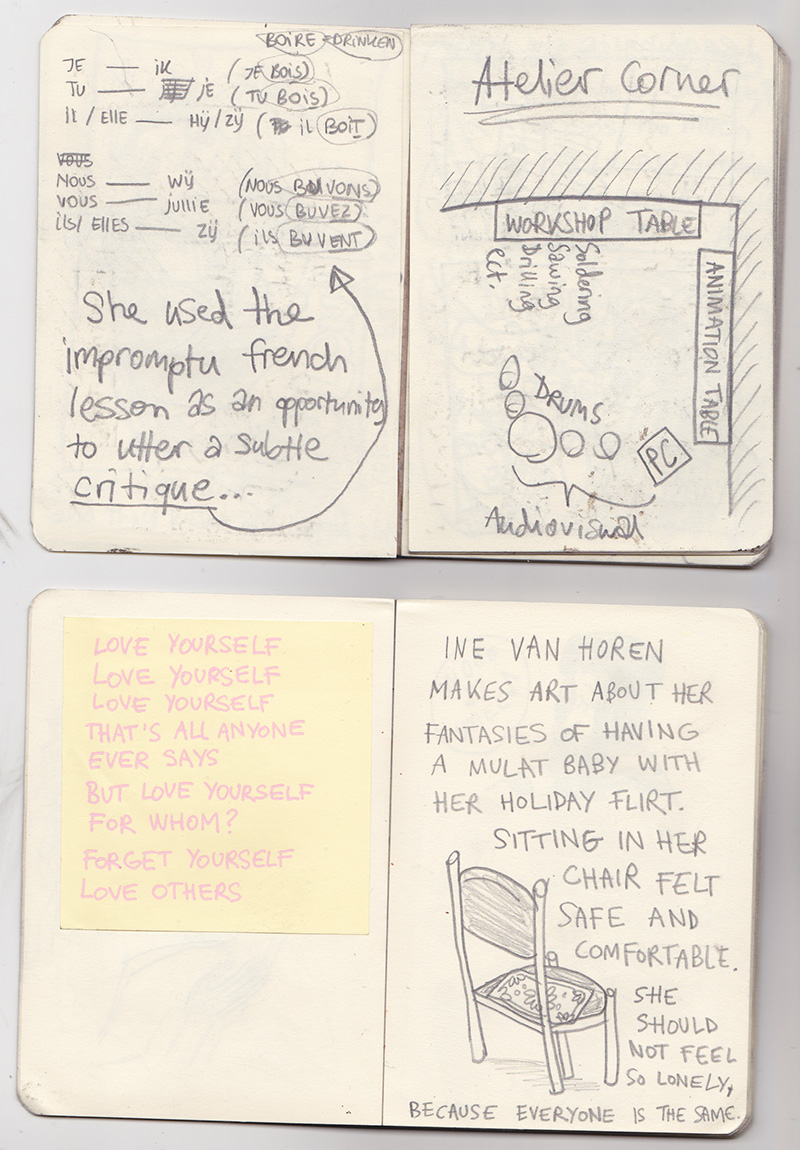 BOIRE = DRINKEN
JE — iK (JE BOIS)
TU — JE (TU BOIS)
il / ElLE — Hij / Zij (il BOIT)
VOUS
NOUS — Wij (NOUS BUVONS)
VOUS — JULLIE (VOUS BUVEZ)
ils/ ELLES — Zij (ils BUVENT)
She used the
impromptu french
lesson as an opportunity
to utter a subtle
critique...
Atelier Corner
WORKSHOP TABLE
Soldering
Sawing
Drilling
ect.
ANIMATION TABLE
DRUMS
PC
Audiovisual
LOVE YOURSELF
LOVE YOURSELF
LOVE YOURSELF
THAT'S ALL ANYONE
EVER SAYS
BUT LOVE YOURSELF
FOR WHOM?
FORGET YOURSELF
LOVE OTHERS
INE VAN HOREN
MAKES ART ABOUT HER
FANTASIES OF HAVING
A MULAT BABY WITH
HER HOLIDAY FLIRT.
SITTING IN HER
CHAIR FELT
SAFE AND
COMFORTABLE.
SHE
SHOULD
NOT FEEL
SO LONELY,
BECAUSE EVERYONE IS THE SAME.